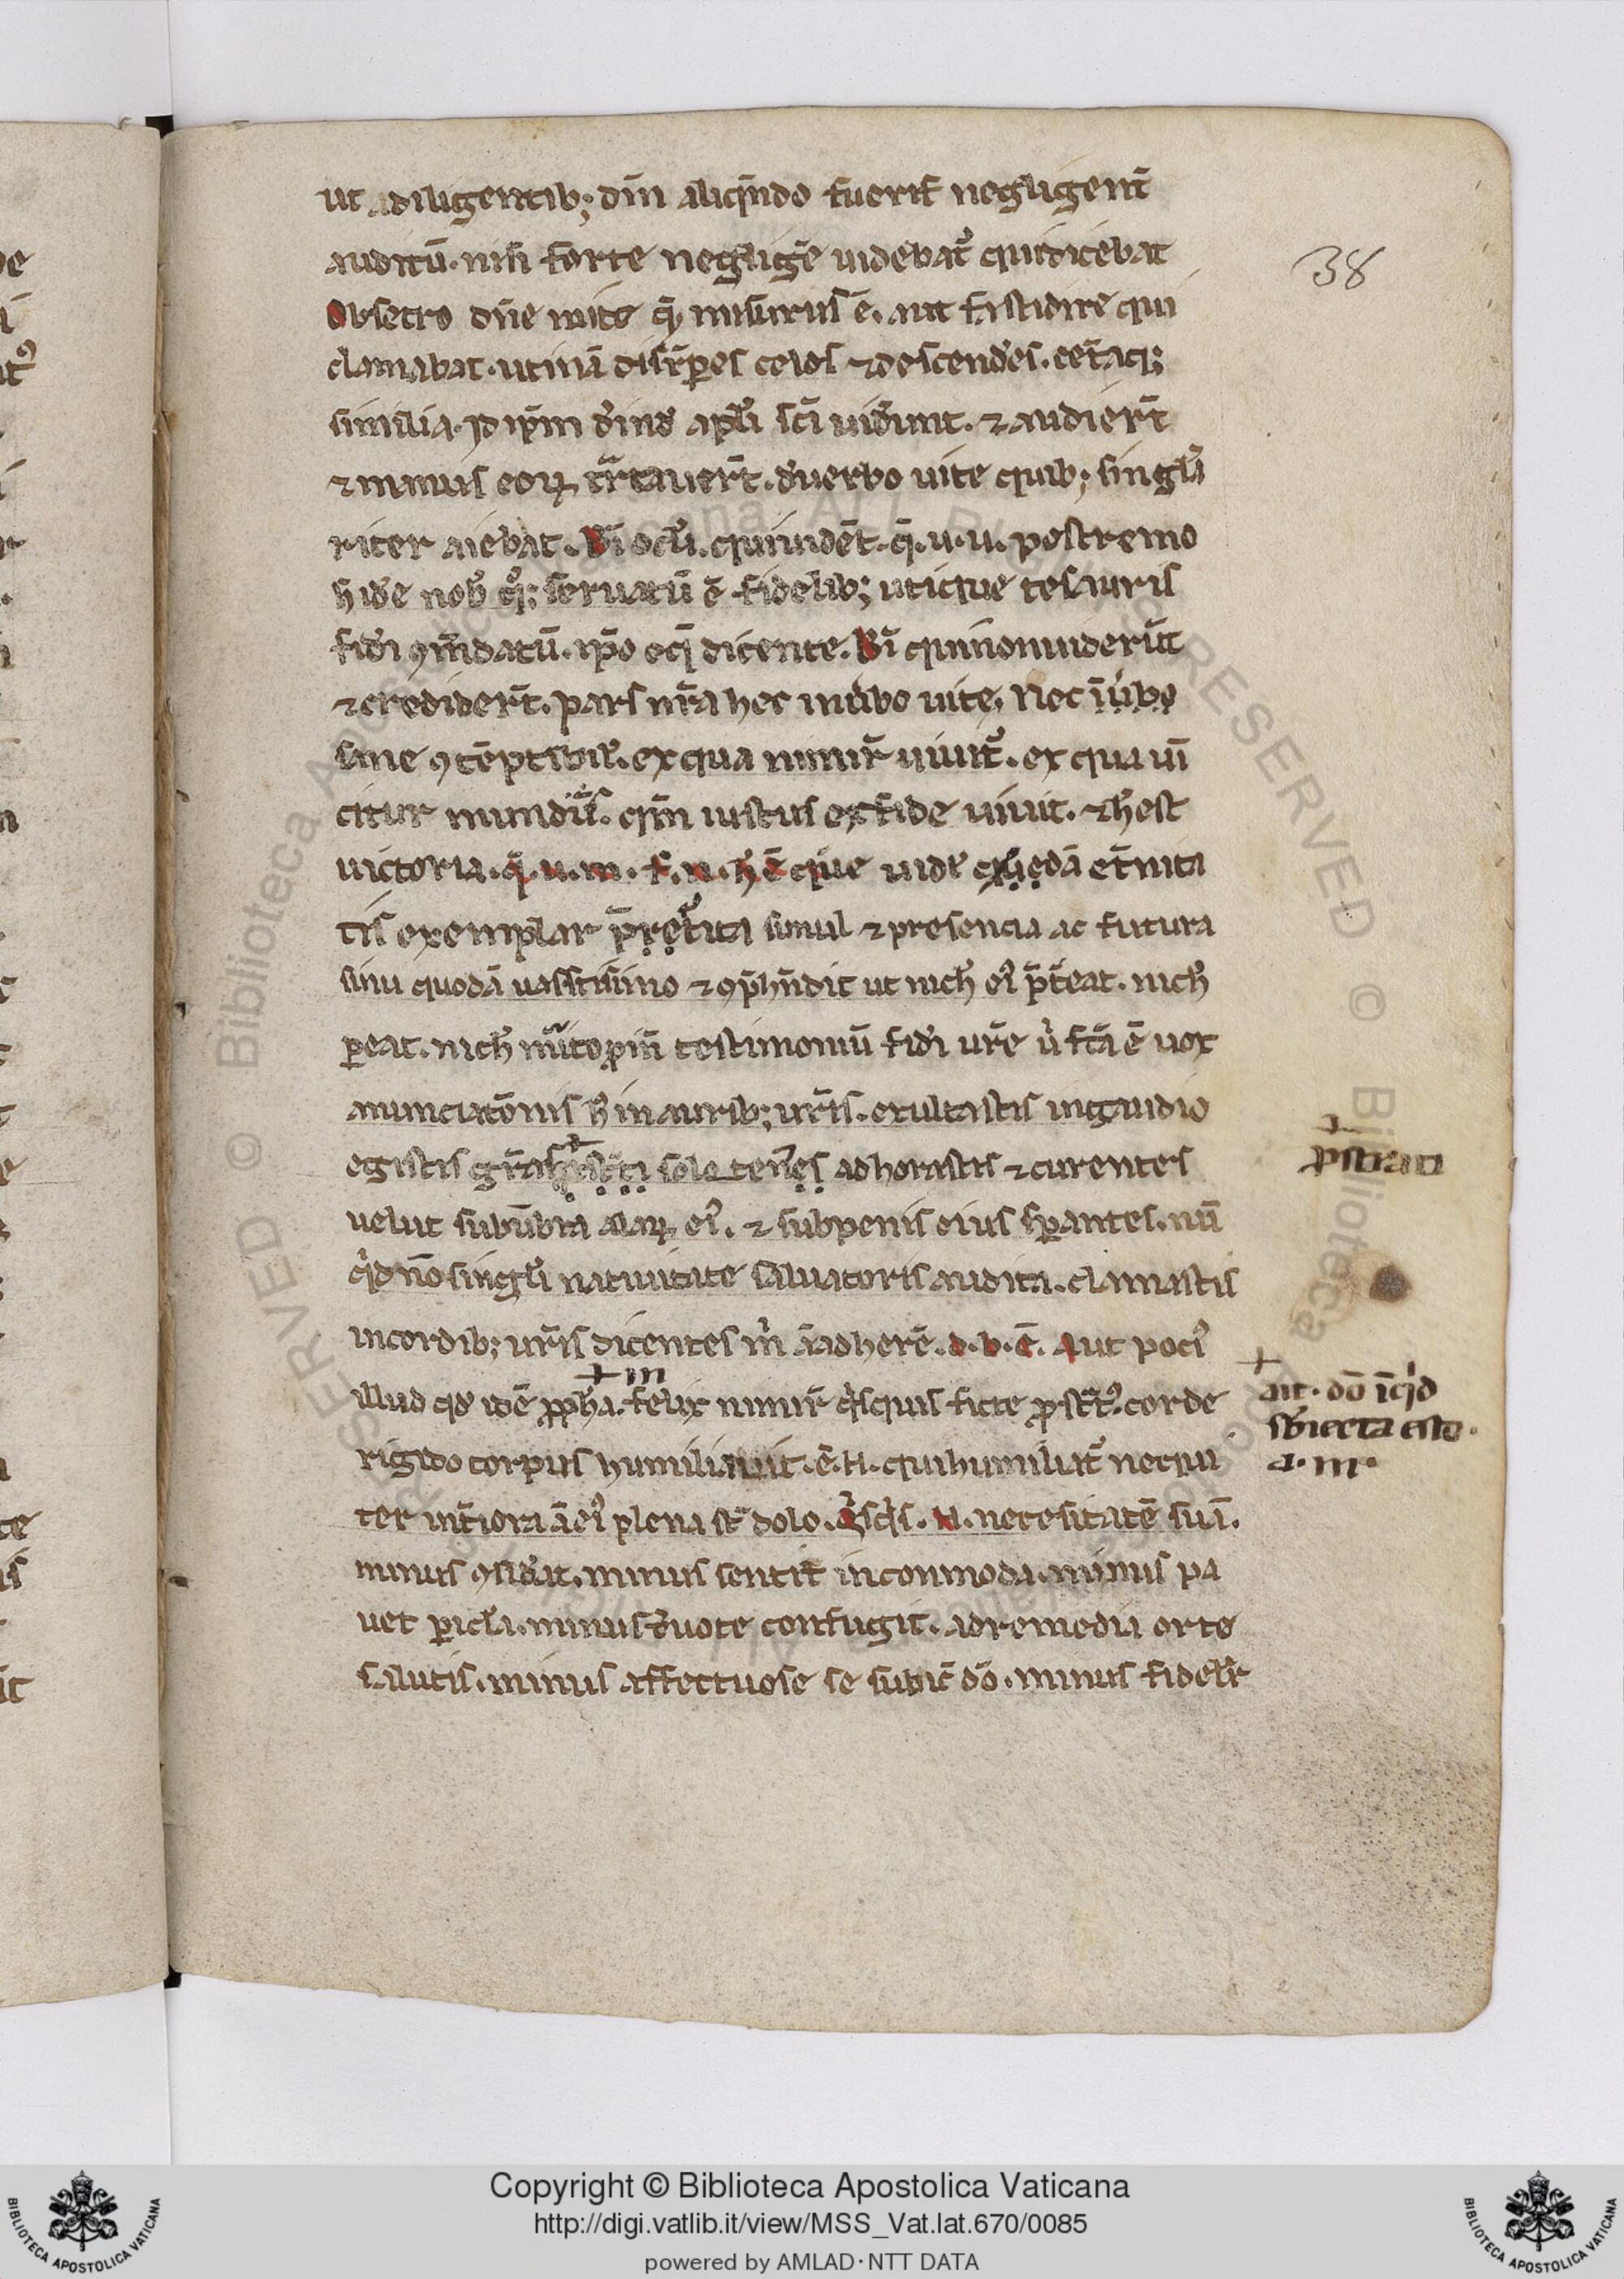 ut a diligentib; dm̄ aliqn̄do fuerit̄ negligent̄
auditū. nisi forte neglige̅ uidebat᷑ qui dicebat
Obsecro dn̄e mitte q̄ misurus ē. aut fastidire qui
clamabat. utinā disrūpes celos ⁊ descend̓es. cet̄aq;
similia. Id ip̄m d̓ind̓ apl̓i sc̄i uid̓unt. ⁊ audier̄t
⁊ manus eoꝝ tr̄tauer̄t. d̓ uerbo uite quib; singl̓a
riter aiebat. Bī ocl̓i. qui uidēt. q̄. u. u. postremo
h̓ id̓e nob̓ qͦq; seruatū ē fidelib; utique tesauris
fid̓i ꝯm̄datū. ip̄o eq̄ dicente. Bī qui non uider̄ut
⁊ credider̄t. pars nr̄a hec in ūbo uite. Nec ī ūbo
sane ꝯtēptibil̓. ex qua nimir̄ uiuit᷑. ex qua uī
citur mundus. qm̄ iustus ex fide uiuit. ⁊ h̓ est
uictoria. q̄. u. m. f. n. h̓ ē que uidr̄ quedā et̄nita
tis exemplar pret̄ita simul ⁊ presencia ac futura
sinu quodā uastissimo ⁊ ꝯp̄hn̄dit ut nich̓ eiꝰ p̄t̄eat. nich̓
ꝑeat. nich̓ testimoniū fid̓i ur̄e u̓ fc̄a ē uox
anunciatōnis h̓ in aurib; ur̄is. exultastis in gaudio
egistis gr̄as solo teneꝰs adhorastis ⁊ curentes
uelut sub ūbra alaꝝ eiꝰ. ⁊ sub penis eius sꝑantes. nū
qͥd nō singl̓i natiuitate saluatoris audita. clamastis
in cordib; ur̄is dicentes m̓ ā adherē. d. b. ē. Aut pociꝰ
+ m
illud qd̓ idē ꝓph̓a. felix nimir̄ qͥsquis ficte ꝓstt̄ꝰ. corde
rigido corpus humiliauit. ē. N. qui humiliat᷑ nequi
ter int̄iora ā eiꝰ plena st̄ dolo. Qͥsqͥs. N. necesitatē suā.
minus ꝯsid̓at. minus sentit incommoda. minus pa
uet ꝑicl̓a. minus d̓uote confugit. ad remedia orte
salutis. minus affectuose se subic̄ dō. minus fidelit̄
38
+
ꝓstrati
+
ait. dō īqͥd
sb̓iecta esto.
a. m.
Copyright © Biblioteca Apostolica Vaticana
http://digi.vatlib.it/view/MSS_Vat.lat.670/0085
powered by AMLAD·NTT DATA
BIBLIOTECA APOSTOLICA VATICANA
BIBLIOTECA APOSTOLICA VATICANA